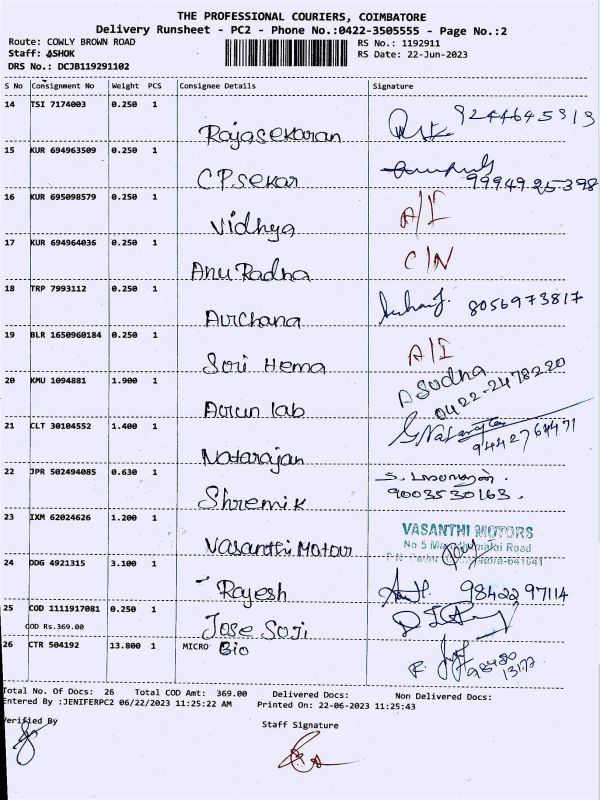 THE PROFESSIONAL COURIERS, COIMBATORE
Delivery Runsheet - PC2 - Phone No.:0422-3505555 - Page No.:2
Route: COWLY BROWN ROAD RS No.: 1192911
Staff: ASHOK RS Date: 22-Jun-2023
DRS No.: DCJB119291102
S No Consignment No Weight PCS Consignee Details Signature
14 TSI 7174003 0.250 1
Rajasekaran 9244645313
15 KUR 694963509 0.250 1
C.P.sekar 9994925398
16 KUR 695098579 0.250 1
Vidhya A/I
17 KUR 694964036 0.250 1
Anu Radha C/N
18 TRP 7993112 0.250 1
Archana 8056973817
19 BLR 1650960184 0.250 1
Sri Hema A/I
20 KMU 1094881 1.900 1
Arun lab A Sudha 0422-2478220
21 CLT 30104552 1.400 1
Natarajan 9442764471
22 JPR 502494085 0.630 1
Shremik 9003530163.
23 IXM 62024626 1.200 1
Vasanthi Motor VASANTHI MOTORS
24 DDG 4921315 3.100 1
Rajesh 9842297114
25 COD 1111917081 0.250 1
COD Rs.369.00
Jose Soji
26 CTR 504192 13.800 1 MICRO Bio
Total No. Of Docs: 26 Total COD Amt: 369.00 Delivered Docs: Non Delivered Docs:
Entered By :JENIFERPC2 06/22/2023 11:25:22 AM Printed On: 22-06-2023 11:25:43
Verified By Staff Signature